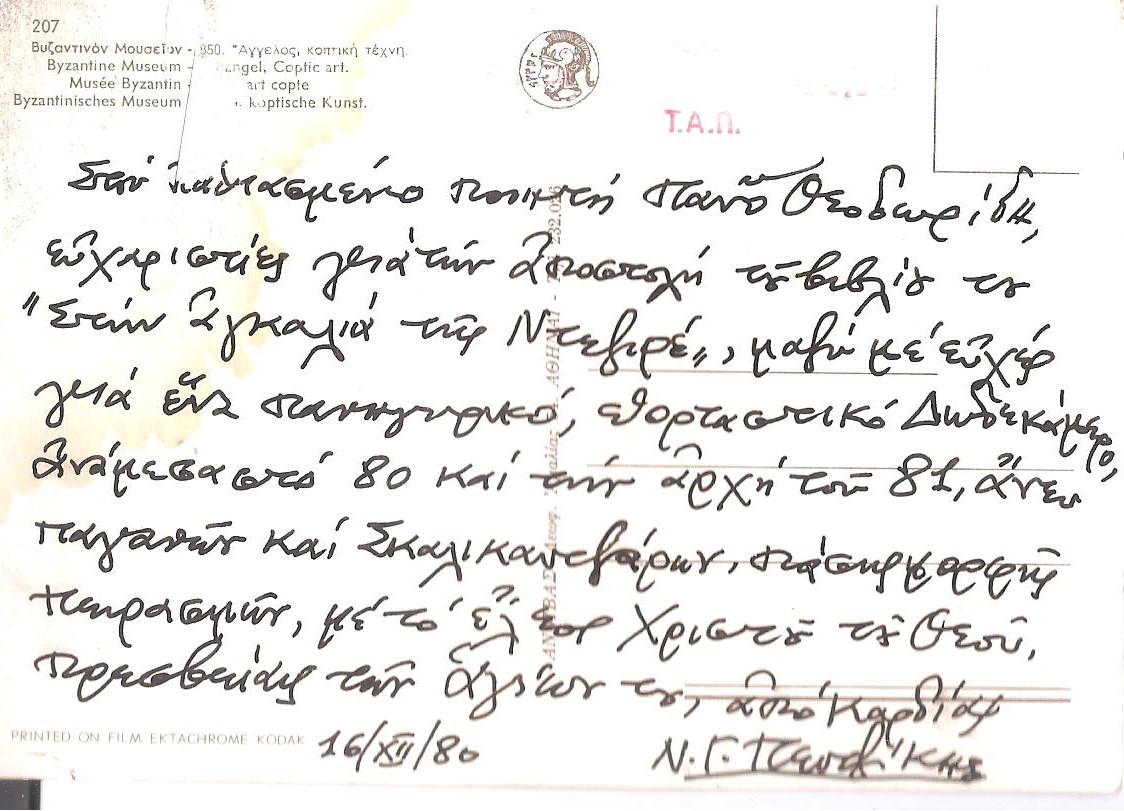 207
Βυζαντινόν Μουσεῖον - 350. Ἄγγελος, κοπτική τέχνη.
Byzantine Museum - Angel, Coptic art.
Musée Byzantin art copte
Byzantinisches Museum koptische Kunst.
Τ.Α.Π.
Στόν ποιητή Πάνο Θεοδωρίδη,
εὐχαριστίες γιά τήν ἀποστολή τοῦ βιβλίου του
"Στήν ἀγκαλιά τῆς Ντεζιρέ", μαζύ μέ εὐχές
γιά ἕνα πανηγυρικό, ἑορταστικό Δωδεκάμερο,
ἀνάμεσα στό 80 καί τήν ἀρχή τοῦ 81, ἄνευ
παγανῶν καί Σκαλικαντζάρων, πάσης μορφῆς
πειρασμῶν, μέ τό ἔλεος Χριστοῦ τοῦ Θεοῦ,
πρεσβείαις τῶν Ἁγίων του, ἀπό καρδίας
16/XII/80 Ν. Γ. Πεντζίκης
PRINTED ON FILM EKTACHROME KODAK
ΑΘΗΝΑΙ